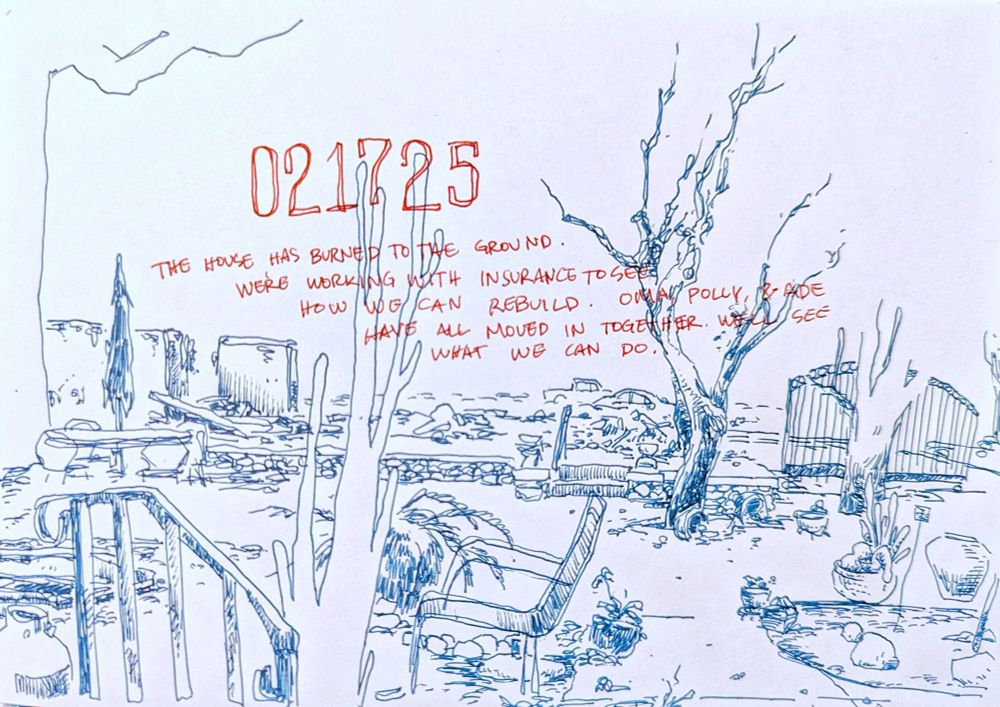 021725
THE HOUSE HAS BURNED TO THE GROUND.
WE'RE WORKING WITH INSURANCE TO SEE
HOW WE CAN REBUILD. OMA, POLLY, & ADE
HAVE ALL MOVED IN TOGETHER. WE'LL SEE
WHAT WE CAN DO.